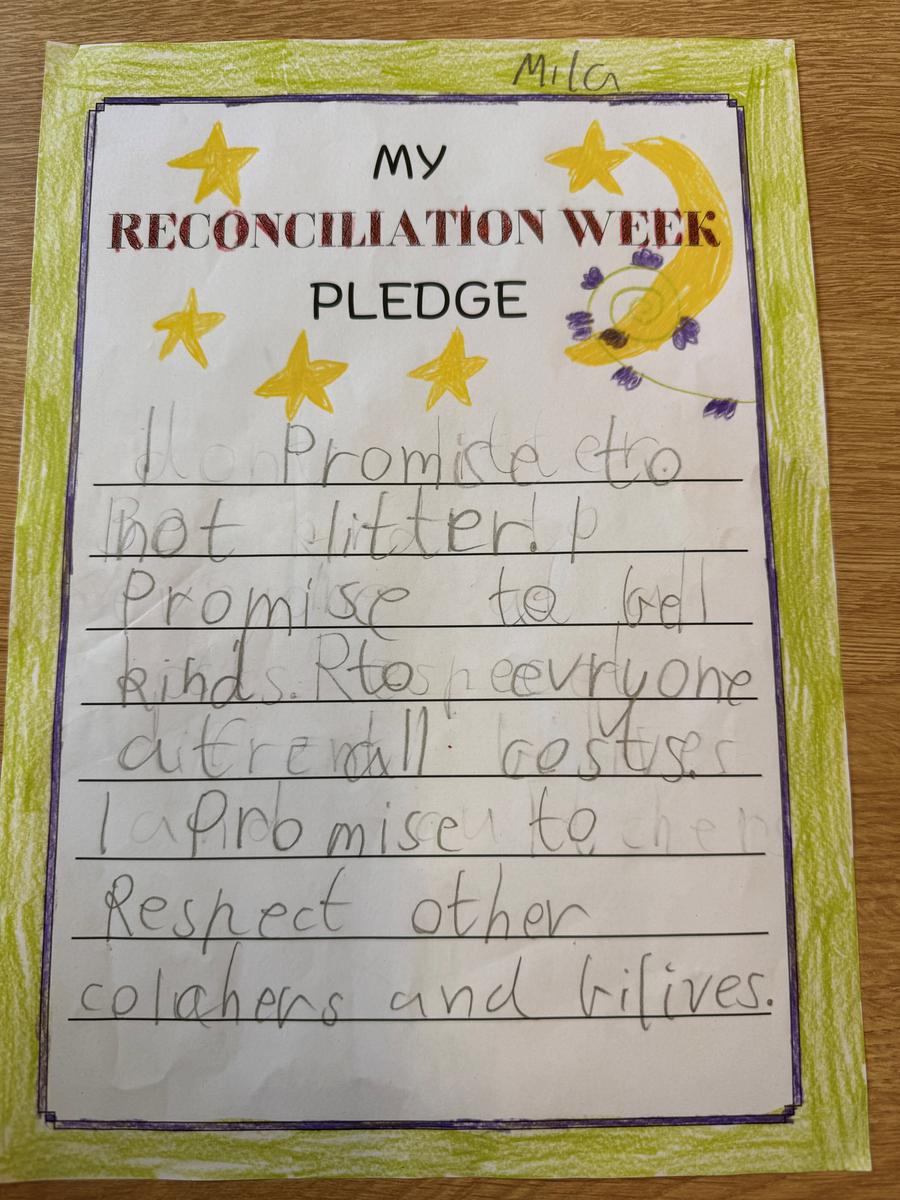 Mila
MY
RECONCILIATION WEEK
PLEDGE
I Promise to
not litter. I
Promise to
kind to evryone
all
I Promise to
Respect other
colahers and bilives.